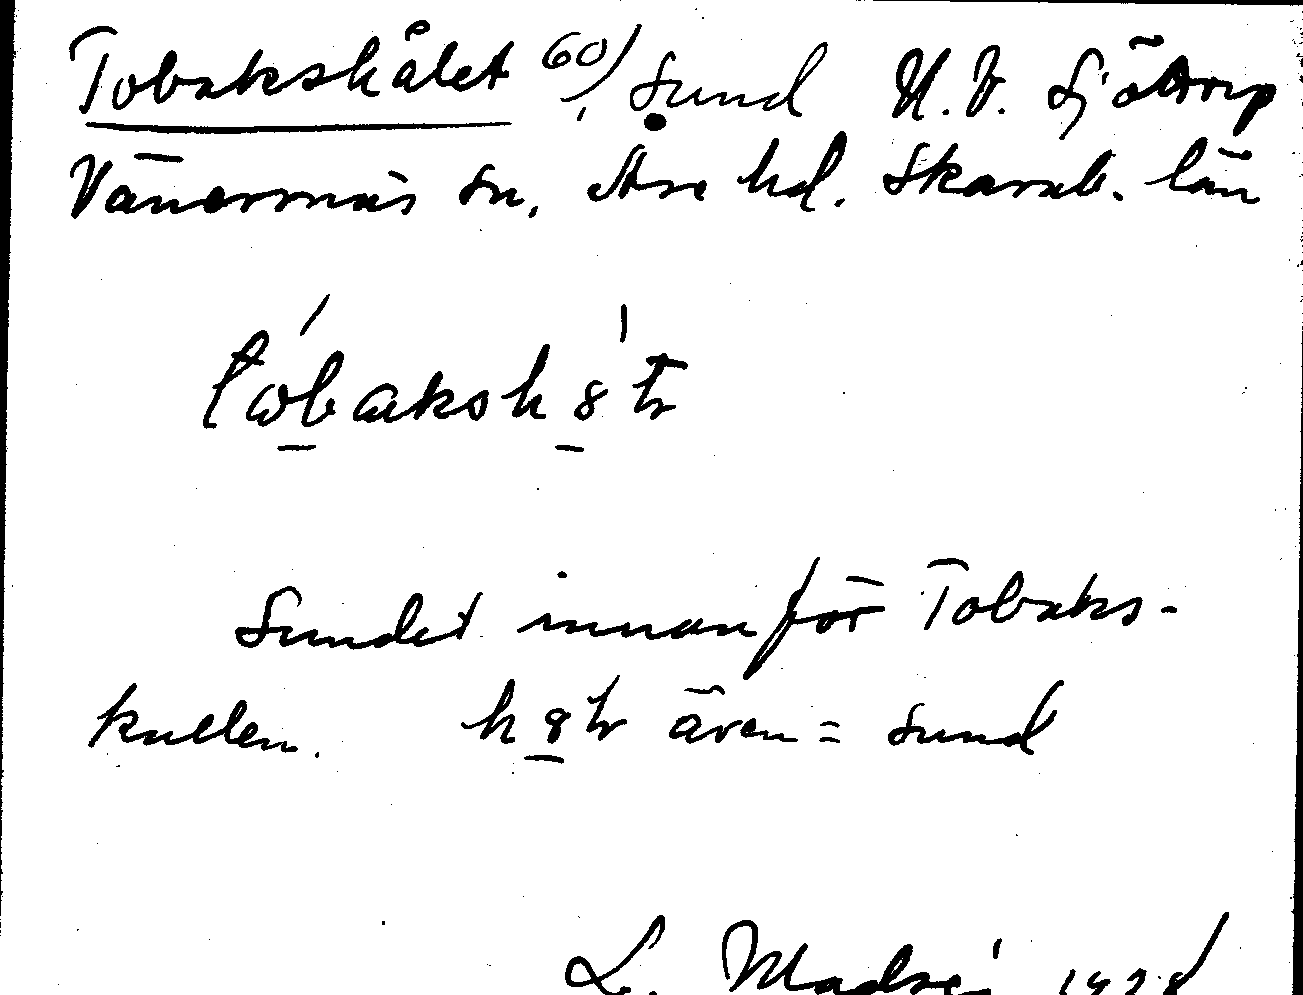 Tobakshålet 60/, Sund N.V. Sjötorp
Vänersnäs sn, Åse hd. Skarab. län
Sundet innanför Tobaks-
kullen. även = sund
L. 1928